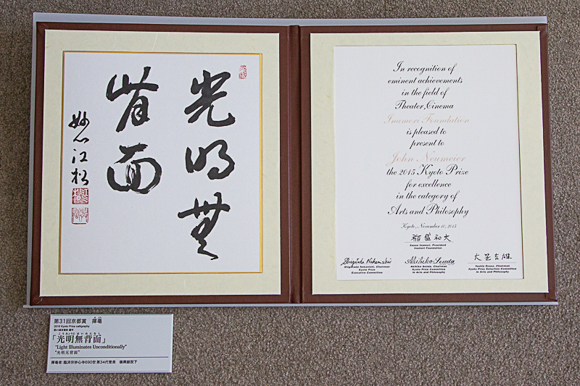 光明無
背面
妙心江松
In recognition of
eminent achievements
in the field of
Theater, Cinema
Inamori Foundation
is pleased to
present to
John Neumeier
the 2015 Kyoto Prize
for excellence
in the category of
Arts and Philosophy
Kyoto, November 10, 2015
稲盛和夫
Kazuo Inamori, President
Inamori Foundation
Shigetada Nakanishi, Chairman
Kyoto Prize
Executive Committee
Kyoto Prize Committee
in Arts and Philosophy
Kyoto Prize Selection Committee
in Arts and Philosophy
第31回京都賞 揮毫
2015 Kyoto Prize calligraphy
「光明無背面」
"Light Illuminates Unconditionally"
"光明无背面"